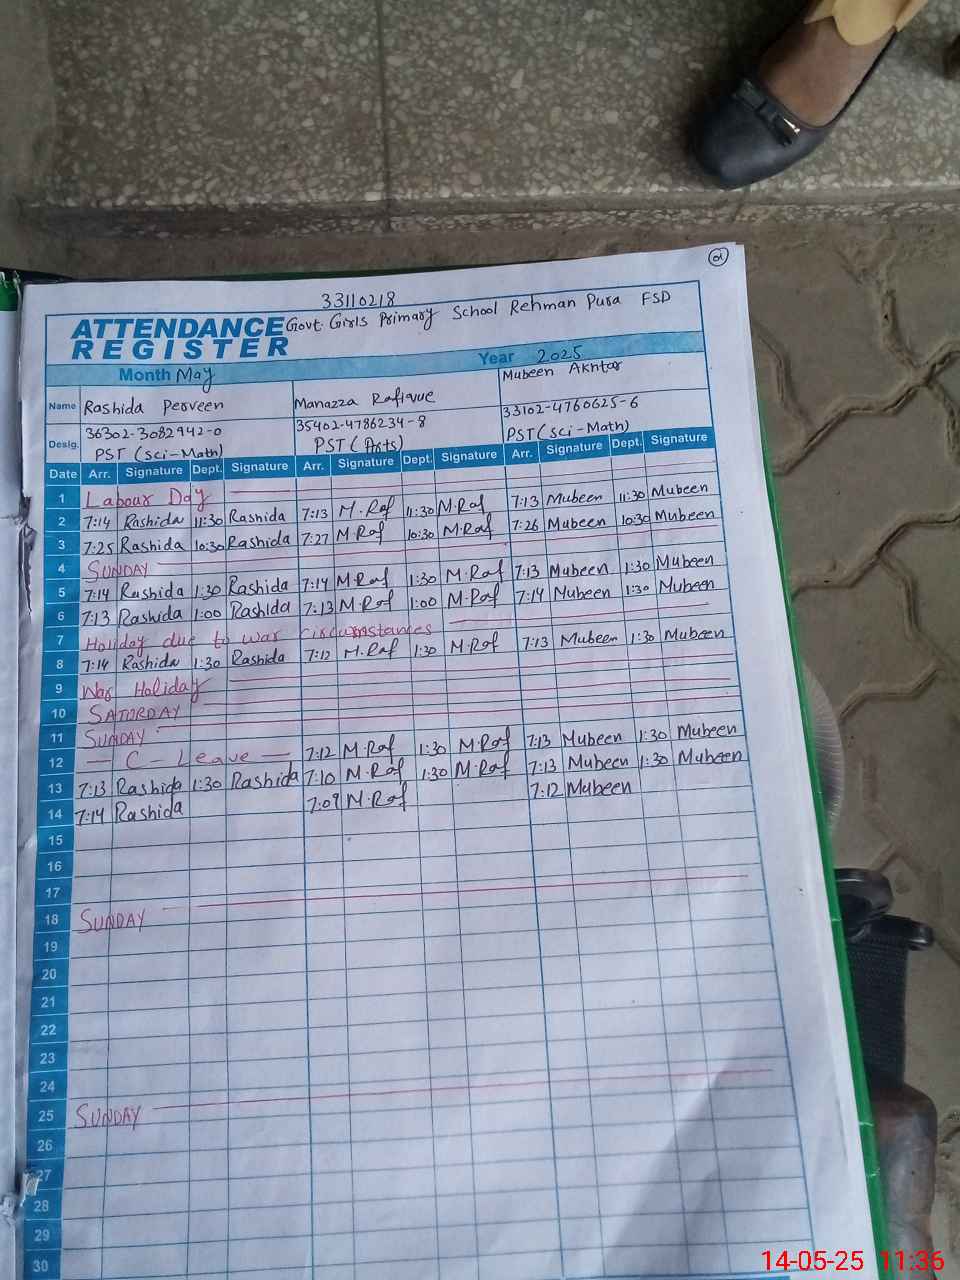 @
33110218
ATTENDANCE Govt. Girls Primary School Rehman Pura FSD
REGISTER
Month May Year 2025
Name Rashida Perveen Manazza Rafique Mubeen Akhtar
Desig. 36302-3082942-0 35402-4786234-8 33102-4760625-6
PST (Sci-Math) PST (Arts) PST (Sci-Math)
Date Arr. Signature Dept. Signature Arr. Signature Dept. Signature Arr. Signature Dept. Signature
1 Labour Day
2 7:14 Rashida 11:30 Rashida 7:13 M.Raf 11:30 M.Raf 7:13 Mubeen 11:30 Mubeen
3 7:25 Rashida 10:30 Rashida 7:27 M.Raf 10:30 M.Raf 7:26 Mubeen 10:30 Mubeen
4 SUNDAY
5 7:14 Rashida 1:30 Rashida 7:14 M.Raf 1:30 M.Raf 7:13 Mubeen 1:30 Mubeen
6 7:13 Rashida 1:00 Rashida 7:13 M.Raf 1:00 M.Raf 7:14 Mubeen 1:30 Mubeen
7 Holiday due to war circumstances
8 7:14 Rashida 1:30 Rashida 7:12 M.Raf 1:30 M.Raf 7:13 Mubeen 1:30 Mubeen
9 War Holiday
10 SATURDAY
11 SUNDAY
12 — C - Leave — 7:12 M.Raf 1:30 M.Raf 7:13 Mubeen 1:30 Mubeen
13 7:13 Rashida 1:30 Rashida 7:10 M.Raf 1:30 M.Raf 7:13 Mubeen 1:30 Mubeen
14 7:14 Rashida 7:09 M.Raf 7:12 Mubeen
15
16
17
18 SUNDAY
19
20
21
22
23
24
25 SUNDAY
26
27
28
29
30
14-05-25 11:36